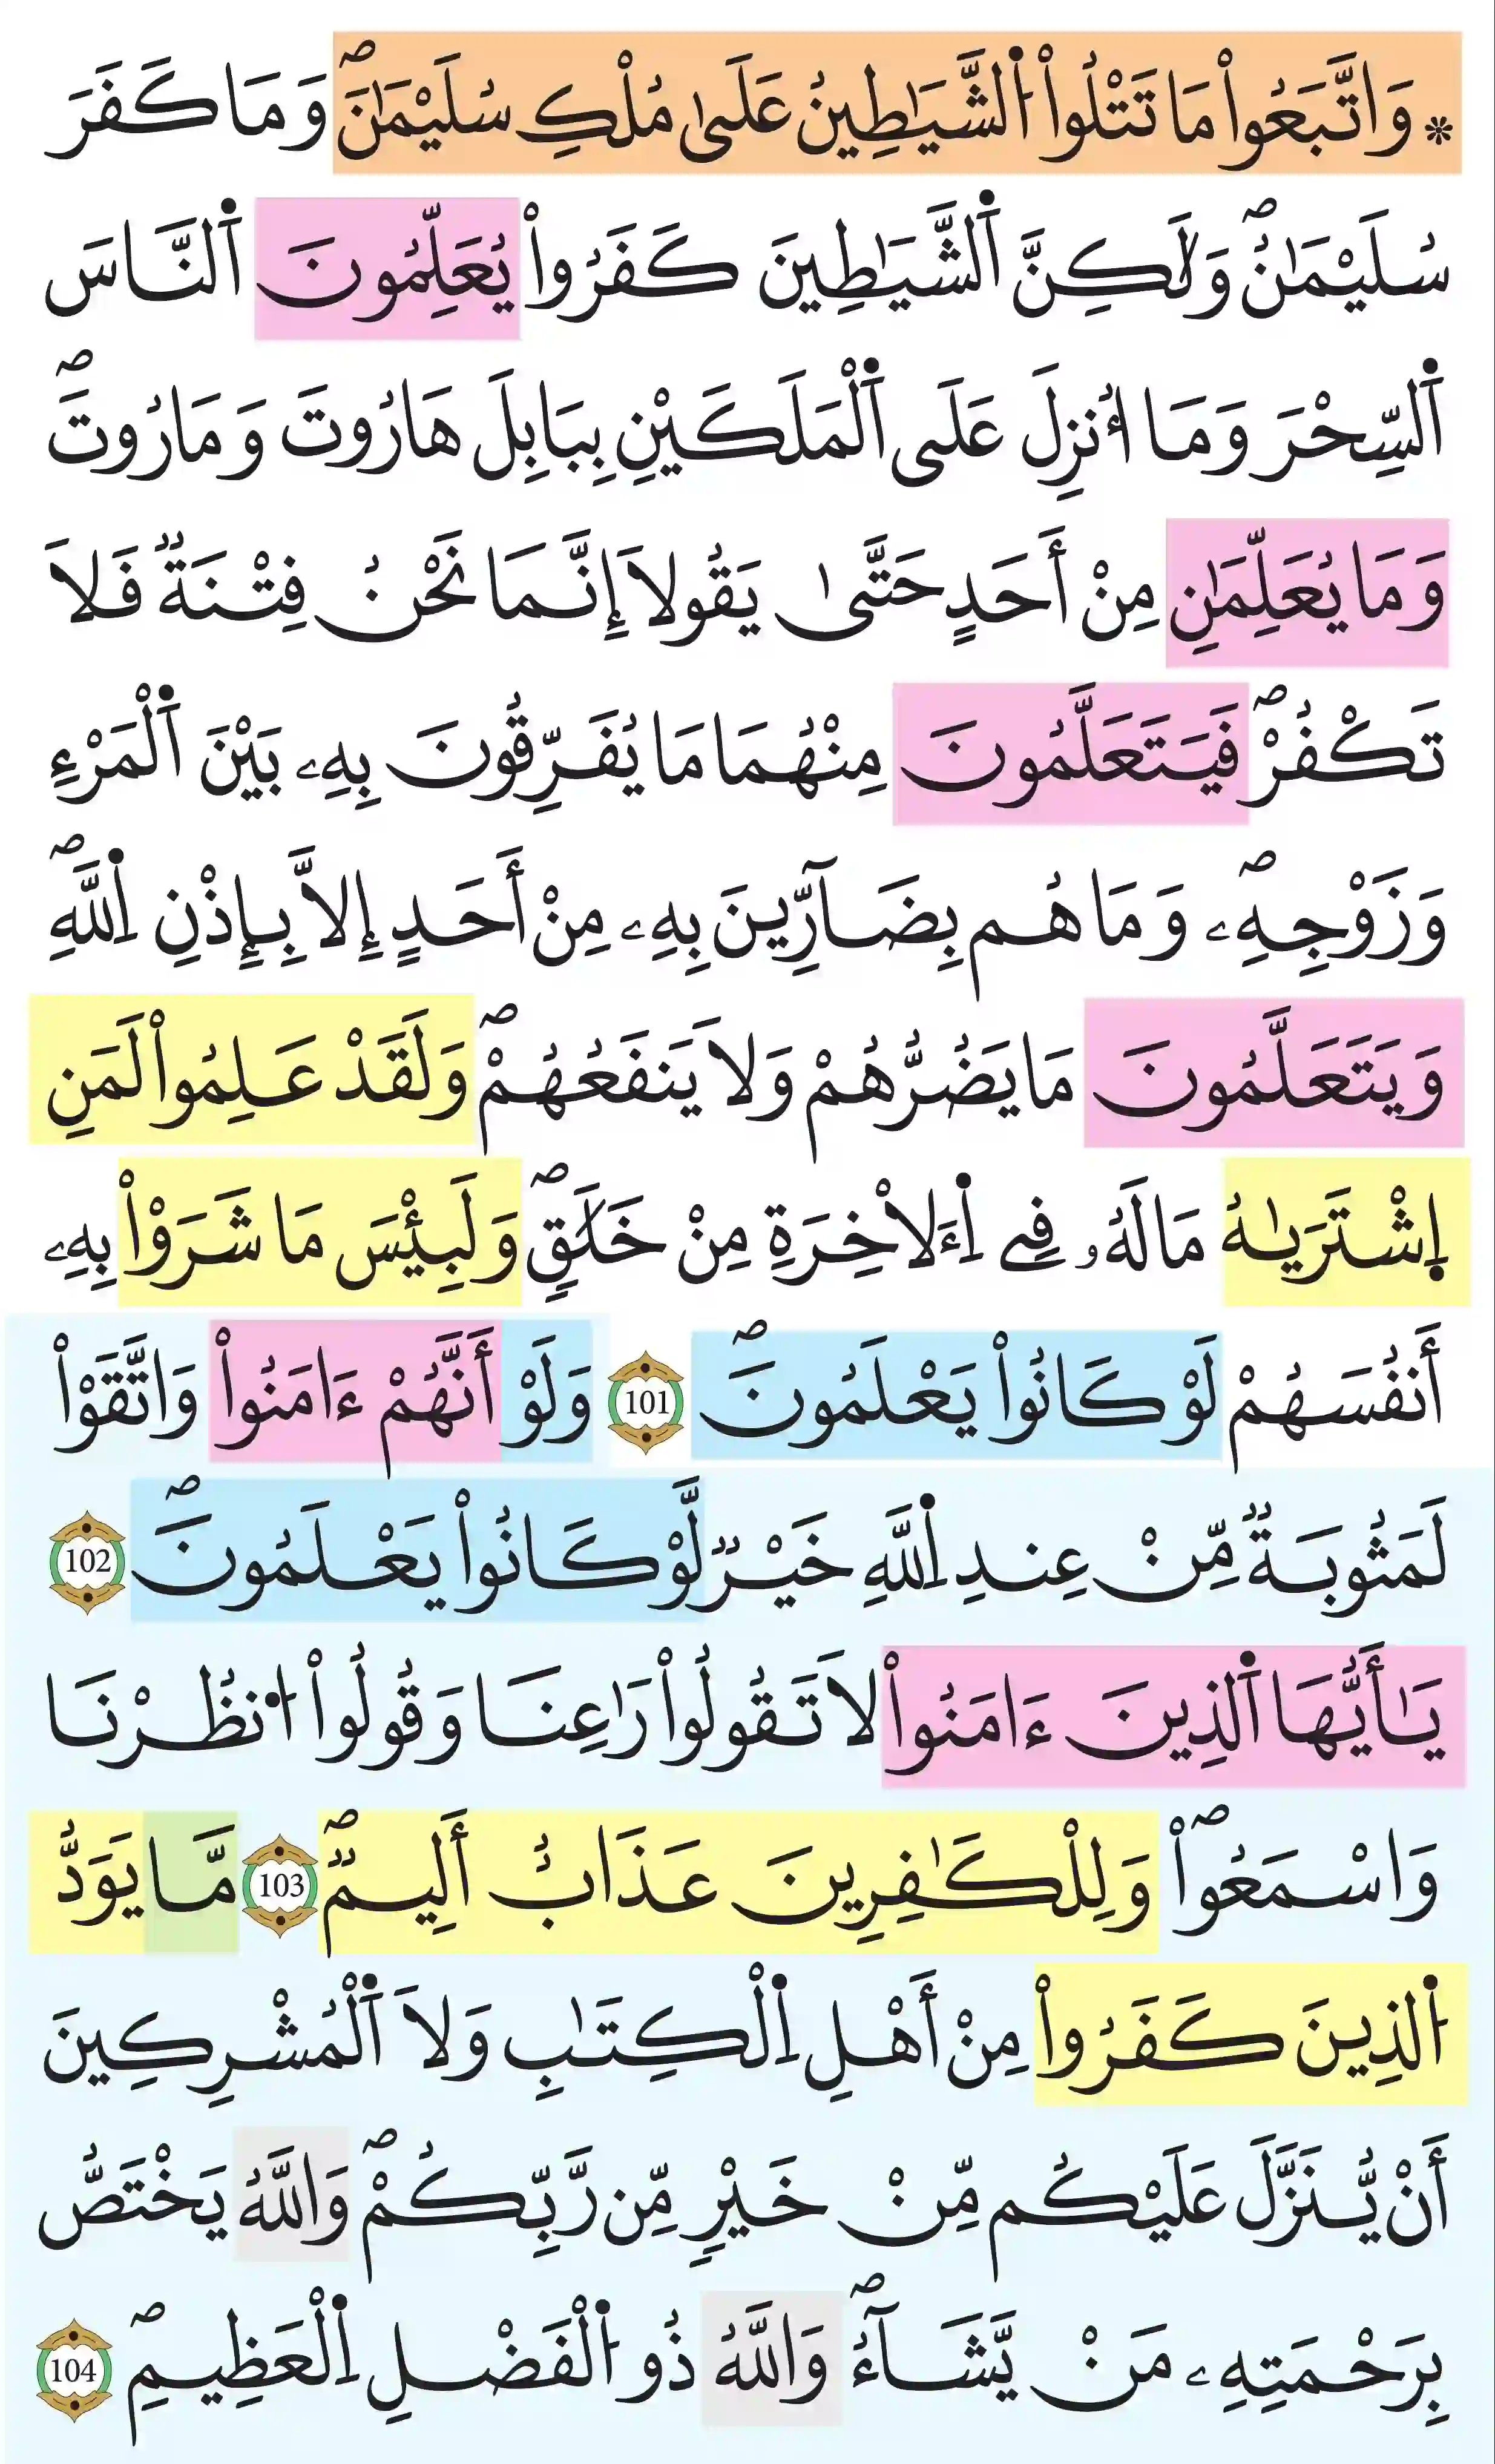 * وَاتَّبَعُواْ مَا تَتْلُواْ اُ۬لشَّيَٰطِينُ عَلَىٰ مُلْكِ سُلَيْمَٰنَۖ وَمَا كَفَرَ
سُلَيْمَٰنُۖ وَلَٰكِنَّ اَ۬لشَّيَٰطِينَ كَفَرُواْ يُعَلِّمُونَ اَ۬لنَّاسَ
اَ۬لسِّحْرَ وَمَا أُنزِلَ عَلَى اَ۬لْمَلَكَيْنِ بِبَابِلَ هَارُوتَ وَمَارُوتَۖ
وَمَا يُعَلِّمَٰنِ مِنْ أَحَدٍ حَتَّىٰ يَقُولَا إِنَّمَا نَحْنُ فِتْنَةٌ فَلَا
تَكْفُرْۖ فَيَتَعَلَّمُونَ مِنْهُمَا مَا يُفَرِّقُونَ بِهِۦ بَيْنَ اَ۬لْمَرْءِ
وَزَوْجِهِۦۖ وَمَا هُم بِضَآرِّينَ بِهِۦ مِنْ أَحَدٍ إِلَّا بِإِذْنِ اِ۬للَّهِۖ
وَيَتَعَلَّمُونَ مَا يَضُرُّهُمْ وَلَا يَنفَعُهُمْۖ وَلَقَدْ عَلِمُواْ لَمَنِ
اِ۪شْتَرَيٰهُ مَا لَهُۥ فِے اِ۬ءَلَاخِرَةِ مِنْ خَلَٰقٍۖ وَلَبِئْسَ مَا شَرَوْاْ بِهِۦ
أَنفُسَهُمْ لَوْ كَانُواْ يَعْلَمُونَۖ 101 وَلَوْ أَنَّهُمْ ءَامَنُواْ وَاتَّقَوْاْ
لَمَثُوبَةٌ مِّنْ عِندِ اِ۬للَّهِ خَيْرٌ لَّوْ كَانُواْ يَعْلَمُونَۖ 102
يَٰأَيُّهَا اَ۬لذِينَ ءَامَنُواْ لَا تَقُولُواْ رَٰعِنَا وَقُولُواْ اُ۟نظُرْنَا
وَاسْمَعُواْۖ وَلِلْكَٰفِرِينَ عَذَابٌ أَلِيمٌۖ 103 مَّا يَوَدُّ
اُ۬لذِينَ كَفَرُواْ مِنْ أَهْلِ اِ۬لْكِتَٰبِ وَلَا اَ۬لْمُشْرِكِينَ
أَنْ يُّنَزَّلَ عَلَيْكُم مِّنْ خَيْرٍ مِّن رَّبِّكُمْۖ وَاللَّهُ يَخْتَصُّ
بِرَحْمَتِهِۦ مَنْ يَّشَآءُۖ وَاللَّهُ ذُو اُ۬لْفَضْلِ اِ۬لْعَظِيمِۖ 104